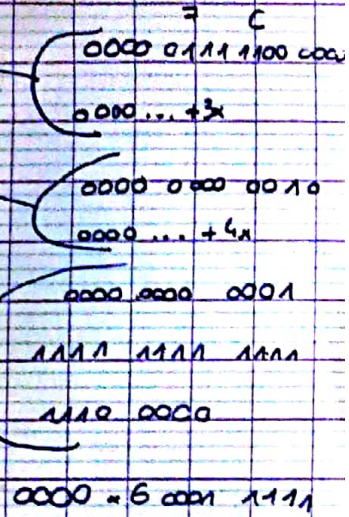 7 C
0000 0111 1100 0000
0000 ... +3x
0000 0000 0010
0000 ... +4x
0000 0000 0001
1111 1111 1111
1110 0000
0000 x6 0001 1111